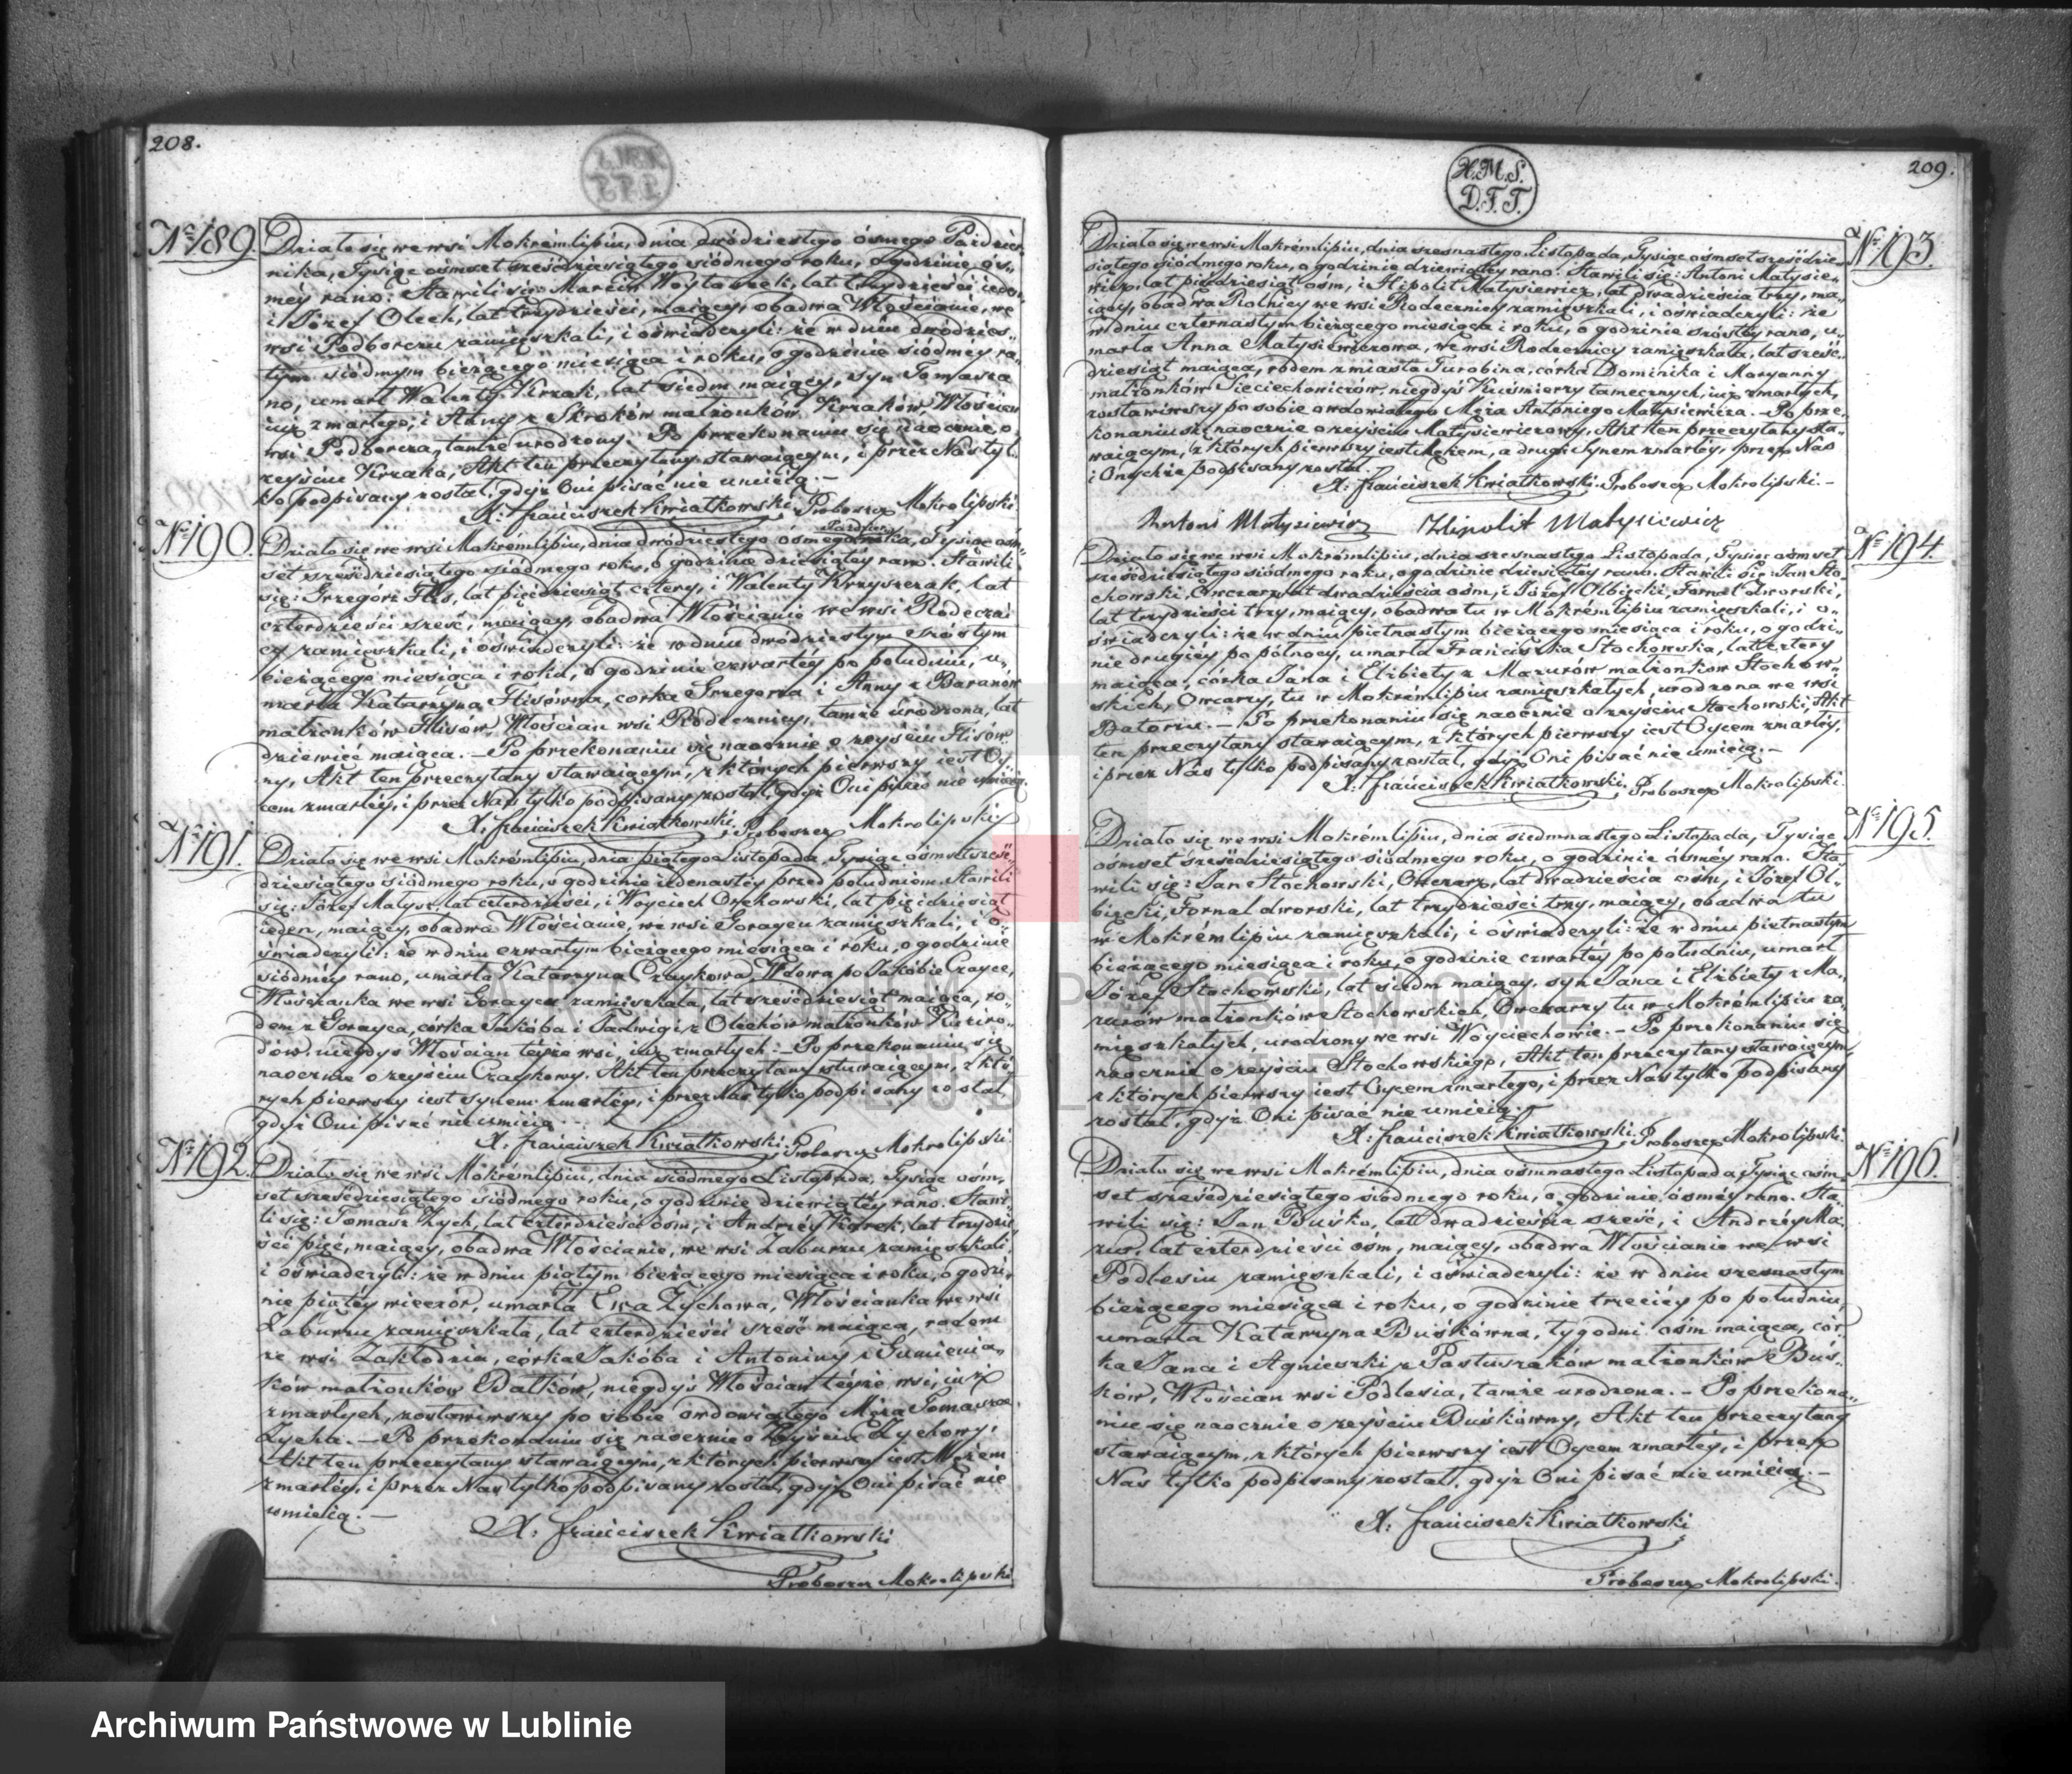 208.
№ 189.
Działo się we wsi Mokrémlipiu, dnia dwódziestego ósmego Paździer„
nika, Tysiąc ośmset sześćdziesiątego siódmego roku, o godzinie ós„
méy rano. Stawili się: Marcin Woytaszek, lat trzydzieści ieden,
i Józef Olech, lat trzydzieści, maiący, obadwa Włościanie, we
wsi Podborczu zamięszkali, i oświadczyli: że w dniu dwódzies„
tym siódmym bieżącego miesiąca i roku, o godzinie siódméy ra„
no, umarł Walenty Krzak, lat siedm maiący, syn Tomasza
iuż zmarłego, i Anny z Skroków małżonków Krzaków Włościan
wsi Podborcza, tamże urodzony. Po przekonaniu się naocznie o
zeyściu Krzaka, Akt ten przeczytany stawaiącym, i przez Nas tyl„
ko podpisany został, gdyż Oni pisać nie umieią. —
X: Franciszek Kwiatkowski Proboszcz Mokrolipski
№ 190.
Działo się we wsi Mokrémlipiu, dnia dwódziestego ósmego Października, Tysiąc ośm„
set sześćdziesiątego siódmego roku, o godzinie dziesiątéy rano. Stawili
się: Grzegorz Flis, lat pięćdziesiąt cztery, i Walenty Krzyszczak, lat
czterdzieści sześć, maiący, obadwa Włościanie we wsi Rodeczni„
cy zamięszkali, i oświadczyli: że w dniu dwódziestym szóstym
bieżącego miesiąca i roku, o godzinie czwartéy po południu, u„
marła Katarzyna Flisówna, córka Grzegorza i Anny z Baranów
małżonków Flisów, Włościan wsi Rodecznicy, tamże urodzona, lat
dziewięć maiąca. — Po przekonaniu się naocznie o zeyściu Flisów„
ny, Akt ten przeczytany stawaiącym, z których pierwszy iest Oy„
cem zmarłéy, i przez Nas tylko podpisany został, gdyż Oni pisać nie umieią.
X: Franciszek Kwiatkowski, Proboszcz Mokrolipski
№ 191.
Działo się we wsi Mokrémlipiu, dnia piątego Listopada, Tysiąc ośmset sześć„
dziesiątego siódmego roku, o godzinie iedenastéy przed południem. Stawili
się: Józef Małysz, lat czterdzieści, i Woyciech Orzechowski, lat pięćdziesiąt
ieden, maiący, obadwa Włościanie, we wsi Goraycu zamięszkali, i o„
świadczyli: że w dniu czwartym bieżącego miesiąca i roku, o godzinie
siódméy rano, umarła Katarzyna Czaykowa, Wdowa po Jakóbie Czayce,
Włościanka we wsi Goraycu zamięszkała, lat sześćdziesiąt maiąca, ro„
dem z Gorayca, córka Jakóba i Jadwigi z Olechów małżonków
niegdyś Włościan teyże wsi, iuż zmarłych. — Po przekonaniu się
naocznie o zeyściu Czaykowy, Akt ten przeczytany stawaiącym, z któ„
rych pierwszy iest synem zmarłéy, i przez Nas tylko podpisany został
gdyż Oni pisać nie umieią.
X: Franciszek Kwiatkowski, Proboszcz Mokrolipski
№ 192.
Działo się we wsi Mokrémlipiu, dnia siódmego Listopada, Tysiąc ośm„
set sześćdziesiątego siódmego roku, o godzinie dziewiątéy rano. Stawi„
li się: Tomasz Zych, lat czterdzieści ośm, i Andrzéy Kurek, lat trzydzie„
ści pięć, maiący, obadwa Włościanie, we wsi Zaburzu zamięszkali,
i oświadczyli: że w dniu piątym bieżącego miesiąca i roku, o godzi„
nie piątéy wieczór, umarła Ewa Zychowa, Włościanka we wsi
Zaburzu zamięszkała, lat czterdzieści sześć maiąca, rodem
ze wsi Zakłodzia, córka Jakóba i Antoniny z Gumienia„
ków małżonków Batków, niegdyś Włościan teyże wsi, iuż
zmarłych, zostawiwszy po sobie owdowiałego Męża Tomasza
Zycha. — Po przekonaniu się naocznie o Zeyściu Zychowy,
Akt ten przeczytany stawaiącym, z których pierwszy iest Mężem
zmarłéy, i przez Nas tylko podpisany został, gdyż Oni pisać nie
umieią. —
X: Franciszek Kwiatkowski
Proboszcz Mokrolipski
H.M.S.
D.F.T.
209.
№ 193.
Działo się we wsi Mokrémlipiu, dnia szesnastego Listopada, Tysiąc ośmset sześćdzie„
siątego siódmego roku, o godzinie dziewiątéy rano. Stawili się: Antoni Matysie„
wicz, lat pięćdziesiąt ośm, i Hipolit Matysiewicz, lat dwadzieścia trzy, ma„
iący, obadwa Rolnicy we wsi Rodecznicy zamięszkali, i oświadczyli: że
w dniu czternastym bieżącego miesiąca i roku, o godzinie szóstéy rano, u„
marła Anna Matysiewiczowa, we wsi Rodecznicy zamięszkała, lat sześć„
dziesiąt maiąca, rodem z miasta Turobina, córka Dominika i Maryanny
małżonków Sieciechowiczów, niegdyś Kuśmierzy tamecznych, iuż zmarłych,
zostawiwszy po sobie owdowiałego Męża Antoniego Matysiewicza. — Po prze„
konaniu się naocznie o zeyściu Matysiewiczowy, Akt ten przeczytany sta„
waiącym, z których pierwszy iest Mężem, a drugi Synem zmarłéy, przez Nas
i Onychże podpisany został.
X: Franciszek Kwiatkowski. Proboszcz Mokrolipski. —
Antoni Matysiewicz Hipolit Matysiewicz
№ 194.
Działo się we wsi Mokrémlipiu, dnia szesnastego Listopada, Tysiąc ośmset
sześćdziesiątego siódmego roku, o godzinie dziesiątéy rano. Stawili się: Jan Sto„
chowski, Owczarz, lat dwadzieścia ośm, i Józef Olbięcki, Fornal dworski,
lat trzydzieści trzy, maiący, obadwa tu w Mokrémlipiu zamięszkali, i o„
świadczyli: że w dniu piętnastym bieżącego miesiąca i roku, o godzi„
nie drugiéy po północy, umarła Franciszka Stochowska, lat cztery
maiąca, córka Jana i Elżbiety z Mazurów małżonków Stochow„
skich, Owczarzy, tu w Mokrémlipiu zamięszkałych, urodzona we wsi
Batorzu. — Po przekonaniu się naocznie o zeyściu Stochowski, Akt
ten przeczytany stawaiącym, z których pierwszy iest Oycem zmarłéy,
i przez Nas tylko podpisany został, gdyż Oni pisać nie umieią. —
X: Franciszek Kwiatkowski, Proboszcz Mokrolipski.
№ 195.
Działo się we wsi Mokrémlipiu, dnia siedmnastego Listopada, Tysiąc
ośmset sześćdziesiątego siódmego roku, o godzinie ósméy rano. Sta„
wili się: Jan Stochowski, Owczarz, lat dwadzieścia ośm, i Józef Ol„
bięcki, Fornal dworski, lat trzydzieści trzy, maiący, obadwa tu
w Mokrémlipiu zamięszkali, i oświadczyli: że w dniu piętnastym
bieżącego miesiąca i roku, o godzinie czwartéy po południu, umarł
Józef Stochowski, lat siedm maiący, syn Jana i Elżbiety z Ma„
zurów małżonków Stochowskich, Owczarzy tu w Mokrémlipiu za„
mięszkałych, urodzony we wsi Woyciechowie. — Po przekonaniu się
naocznie o zeyściu Stochowskiego, Akt ten przeczytany stawaiącym,
z których pierwszy iest Oycem zmarłego, i przez Nas tylko podpisany
został, gdyż Oni pisać nie umieią.
X: Franciszek Kwiatkowski, Proboszcz Mokrolipski.
№ 196.
Działo się we wsi Mokrémlipiu, dnia ośmnastego Listopada, Tysiąc ośm„
set sześćdziesiątego siódmego roku, o godzinie ósméy rano. Sta„
wili się: Jan Buśko, lat dwadzieścia sześć, i Andrzéy Ma„
zur, lat czterdzieści ośm, maiący, obadwa Włościanie we wsi
Podlesiu zamięszkali, i oświadczyli: że w dniu szesnastym
bieżącego miesiąca i roku, o godzinie trzeciéy po południu,
umarła Katarzyna Buśkówna, tygodni ośm maiąca, cór„
ka Jana i Agnieszki z Pastuszaków małżonków Buś„
ków, Włościan wsi Podlesia, tamże urodzona. — Po przekona„
niu się naocznie o zeyściu Buśkówny, Akt ten przeczytany
stawaiącym, z których pierwszy iest Oycem zmarłéy, i przez
Nas tylko podpisany został, gdyż Oni pisać nie umieią. —
X: Franciszek Kwiatkowski
Proboszcz Mokrolipski.
ARCHIWUM PAŃSTWOWE
LUBLINIE
Archiwum Państwowe w Lublinie